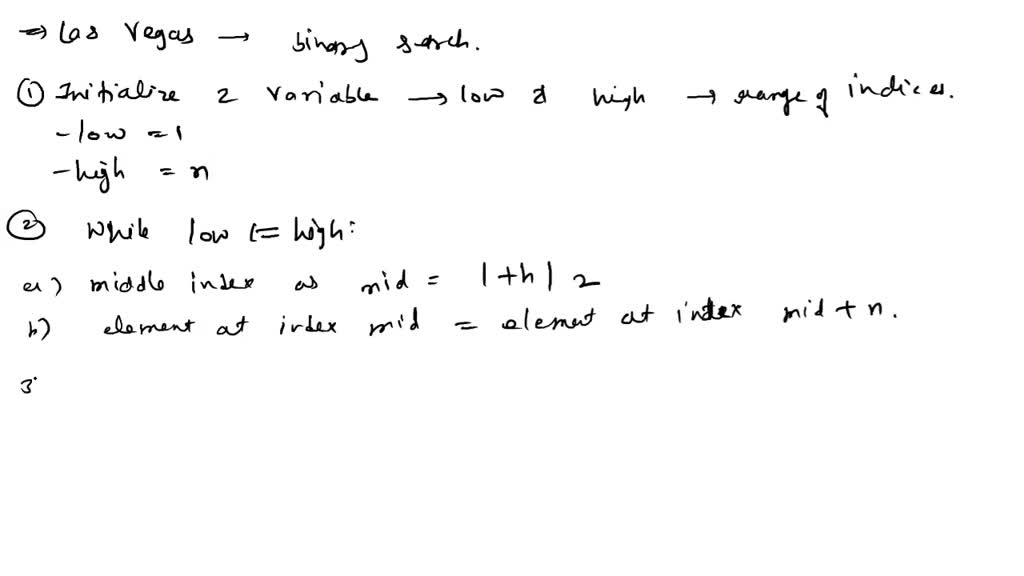 ⇒ Las Vegas → binary search.
① Initialize 2 variable → low & high → range of indices.
- low = 1
- high = n
② While low <= high:
a) middle index as mid = l+h | 2
b) element at index mid = element at index mid + n.
3.